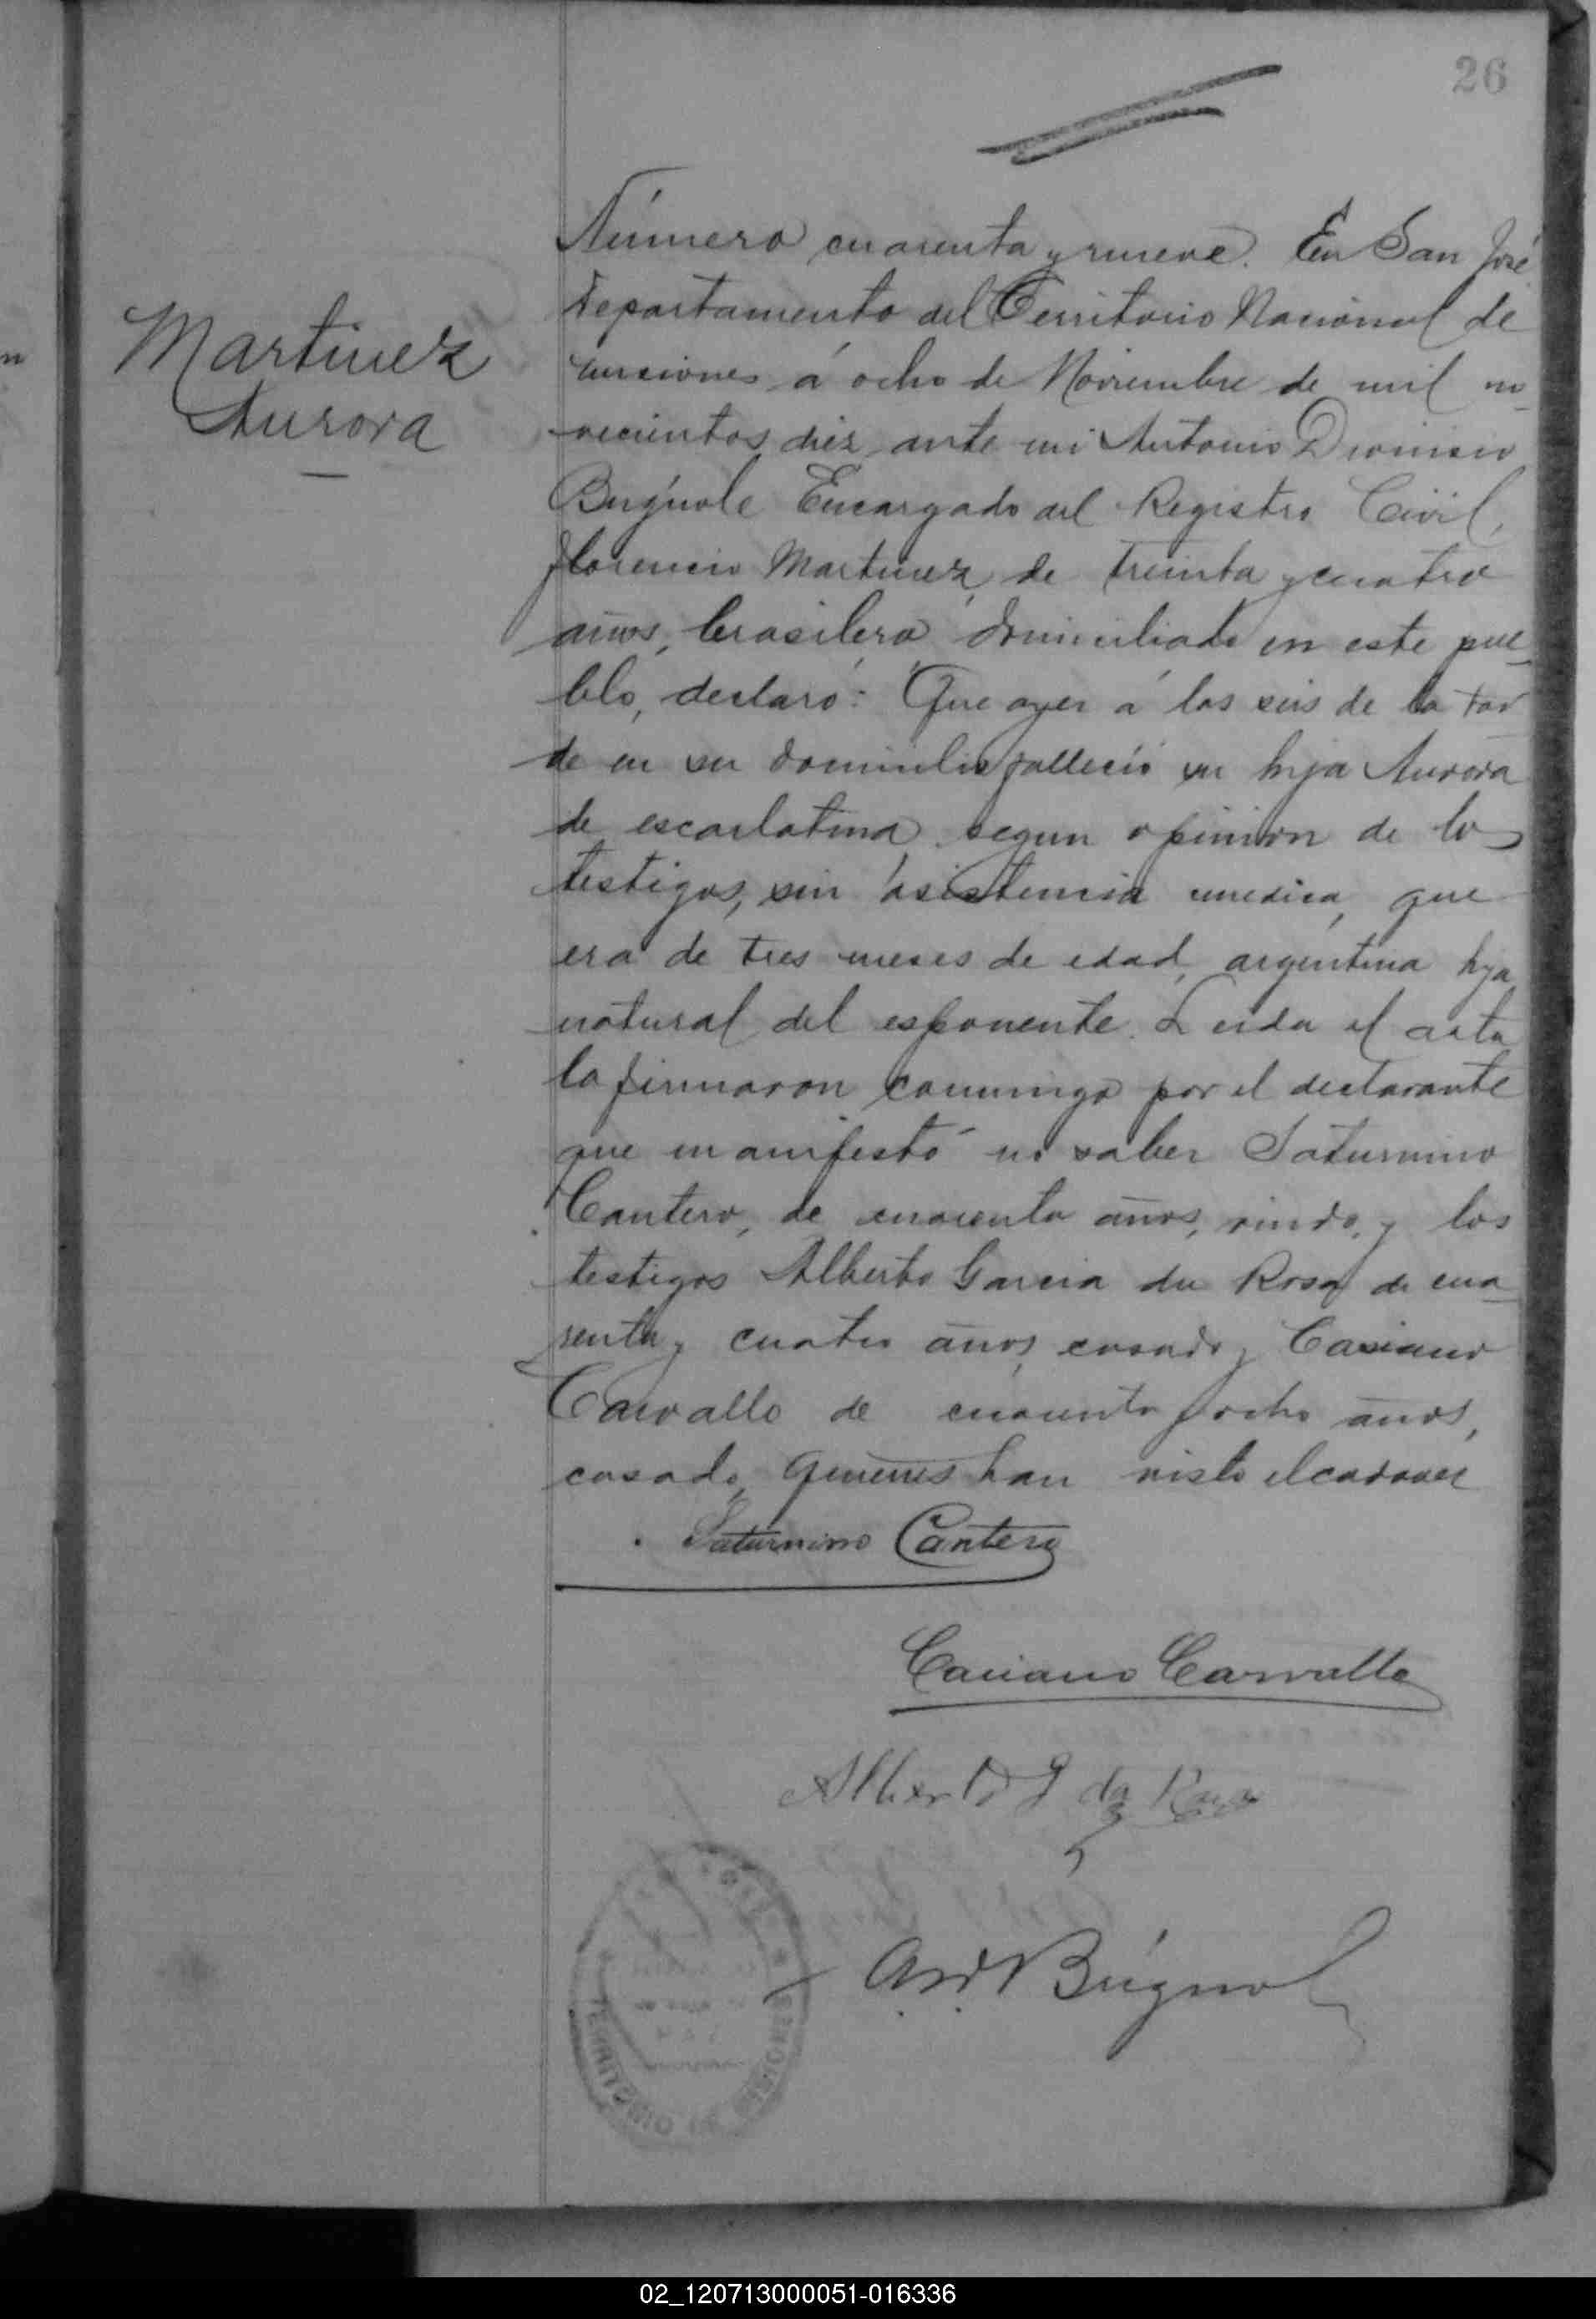 26
Número cuarenta y nueve. En San José
Departamento del Territorio Nacional de
Martinez
Misiones á ocho de Noviembre de mil no
Aurora
vecientos diez ante mi Antonio Dionisio
Búgnole Encargado del Registro Civil,
Florencio Martinez, de treinta y cuatro
años, brasilero domiciliado en este pue
blo, declaró: Que ayer á las seis de la tar
de en su domicilio falleció su hija Aurora
de escarlatina segun opinion de los
testigos, sin asistencia medica, que
era de tres meses de edad, argentina hija
natural del esponente. Leida el acta
la firmaron conmigo por el declarante
que manifestó no saber Saturnino
Cantero, de cuarenta años, viudo, y los
testigos Alberto Garcia da Rosa de cua
renta y cuatro años, casado y Casiano
Carvallo de cuarenta y ocho años,
casado, quienes han visto el cadaver
Saturnino Cantero
Casiano Carvallo
Alberto G da Rosa
A. D. Búgnol
TERRITORIO DE MISIONES
02_120713000051-016336